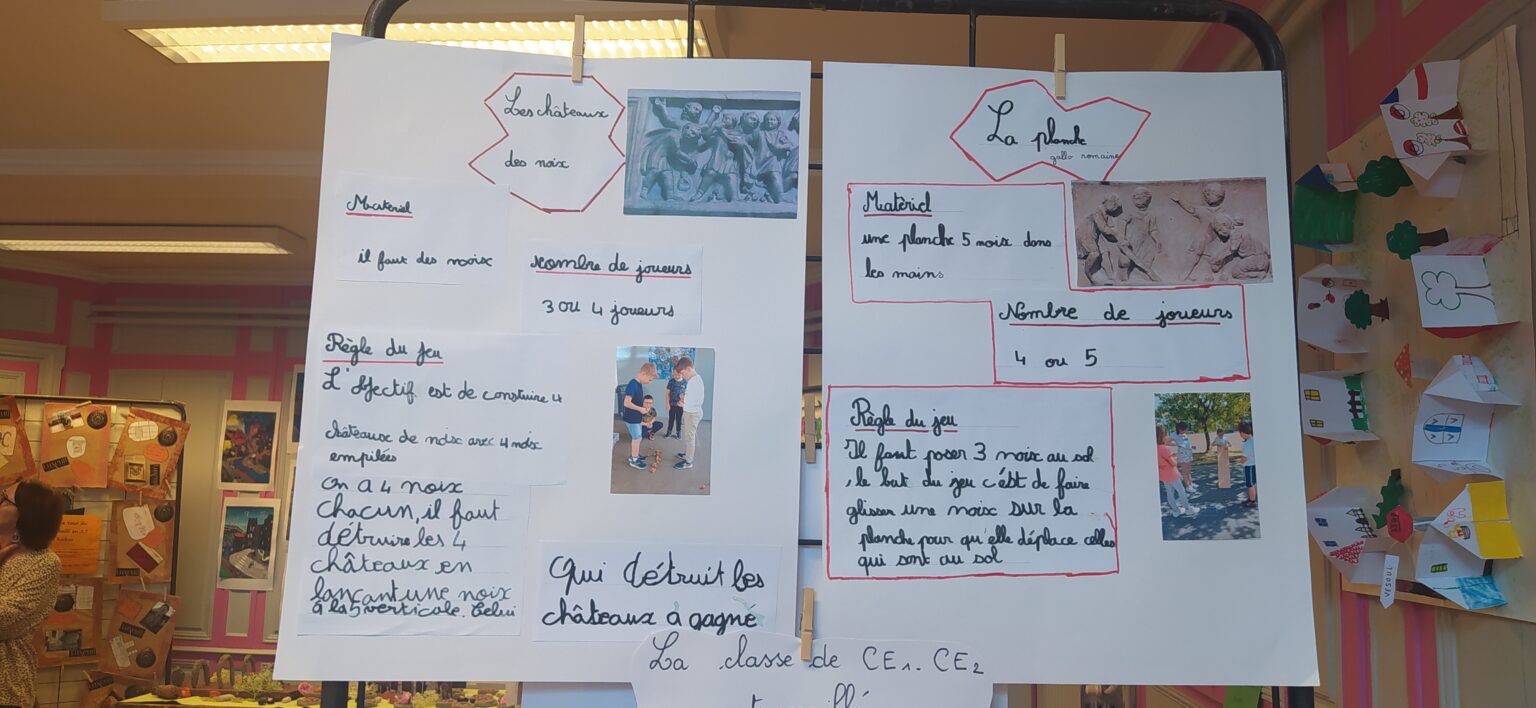 Les châteaux
des noix
Matériel
il faut des noix
Nombre de joueurs
3 ou 4 joueurs
Règle du jeu
L'objectif est de construire 4
châteaux de noix avec 4 noix
empilées
On a 4 noix
chacun, il faut
détruire les 4
châteaux en
lançant une noix
à la verticale. Celui
Qui détruit les
châteaux à gagné
La planche
gallo romaine
Matériel
une planche 5 noix dans
les mains
Nombre de joueurs
4 ou 5
Règle du jeu
Il faut poser 3 noix au sol
, le but du jeu c'ést de faire
glisser une noix sur la
planche pour qu'elle déplace celles
qui sont au sol
La classe de CE1. CE2
VESOUL